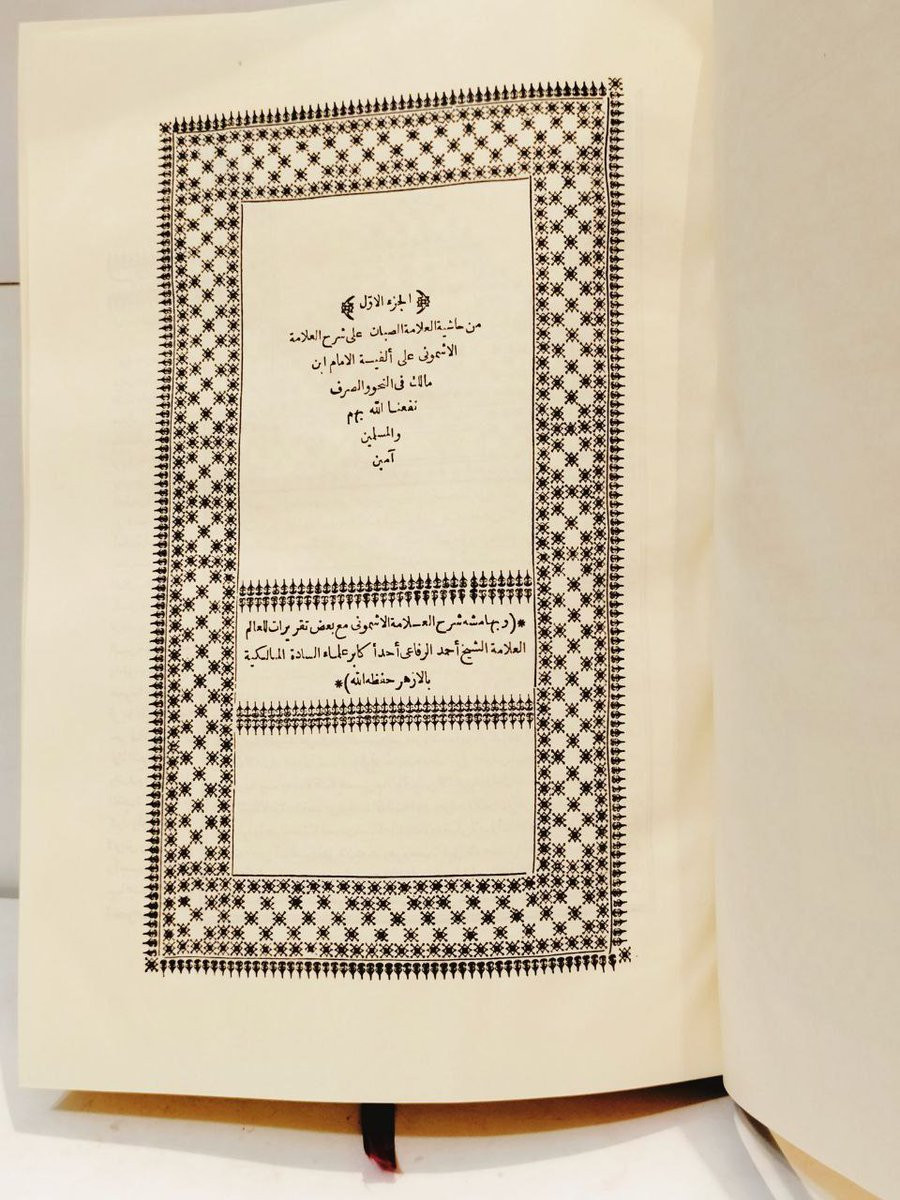 ﴿ الجزء الاول ﴾
من حاشية العلامة الصبان على شرح العلامة
الاشمونى على ألفية الامام ابن
مالك فى النحو والصرف
نفعنا الله بهم
والمسلمين
آمين
*(وبهامشه شرح العلامة الاشمونى مع بعض تقريرات للعالم
العلامة الشيخ أحمد الرفاعى أحد أكابر علماء السادة المالكية
بالازهر حفظه الله)*